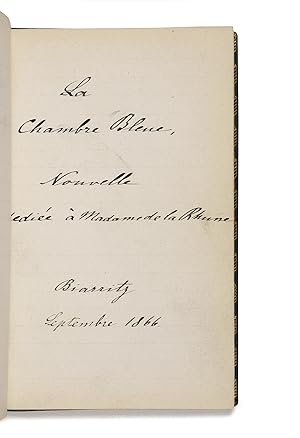 La
Chambre Bleue,
Nouvelle
dédiée à Madame de la Rhune
Biarritz
Septembre 1866